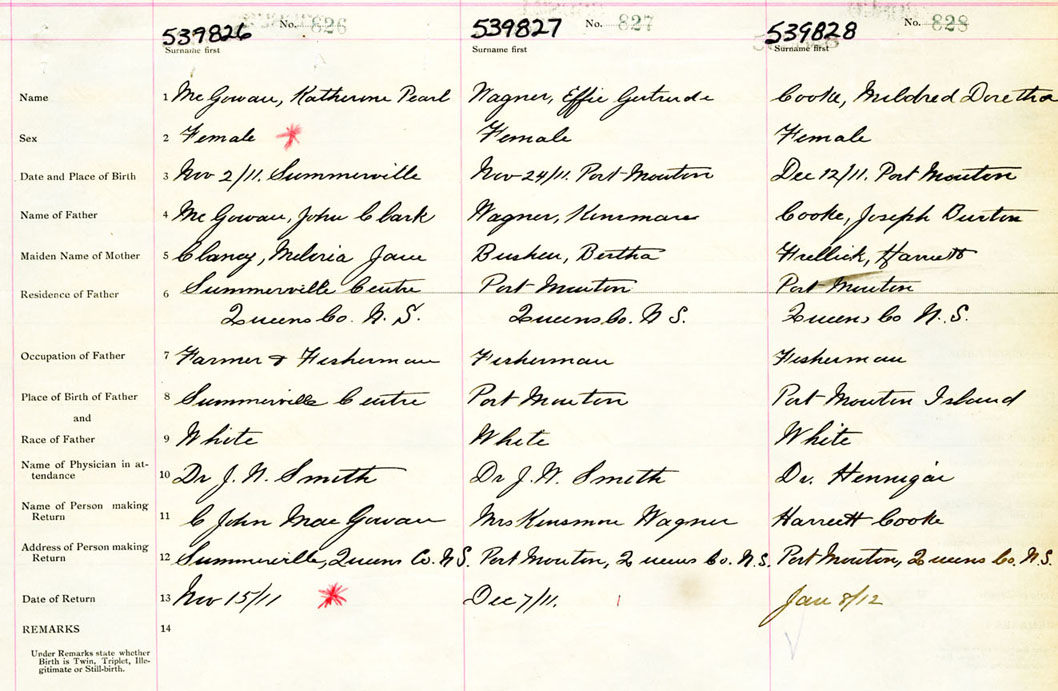 539826 No. 826 539827 No. 827 539828 No. 828
Surname first Surname first Surname first
Name 1 McGowan, Katherine Pearl Wagner, Effie Gertrude Cooke, Mildred Doretha
Sex 2 Female Female Female
Date and Place of Birth 3 Nov 2/11. Summerville Nov 24/11. Port Mouton Dec 12/11. Port Mouton
Name of Father 4 Mc Gowan, John Clark Wagner, Kinsman Cooke, Joseph Burton
Maiden Name of Mother 5 Clancy, Jane Bushen, Bertha Frellick, Harriett
Residence of Father 6 Summerville Centre Port Mouton Port Mouton
Queens Co. N. S. Queens Co. N S. Queens Co N. S.
Occupation of Father 7 Farmer & Fisherman Fisherman Fisherman
Place of Birth of Father 8 Summerville Centre Port Mouton Port Mouton Island
and
Race of Father 9 White White White
Name of Physician in at-
tendance 10 Dr J. W. Smith Dr J. W. Smith Dr. Hennigar
Name of Person making
Return 11 C John Mac Gowan Mrs Kinsmon Wagner Harriett Cooke
Address of Person making
Return 12 Summerville, Queens Co. N.S. Port Mouton, Queens Co. N.S. Port Mouton, Queens Co. N.S.
Date of Return 13 Nov 15/11 Dec 7/11. Jan 8/12
REMARKS 14
Under Remarks state whether
Birth is Twin, Triplet, Ille-
gitimate or Still-birth.